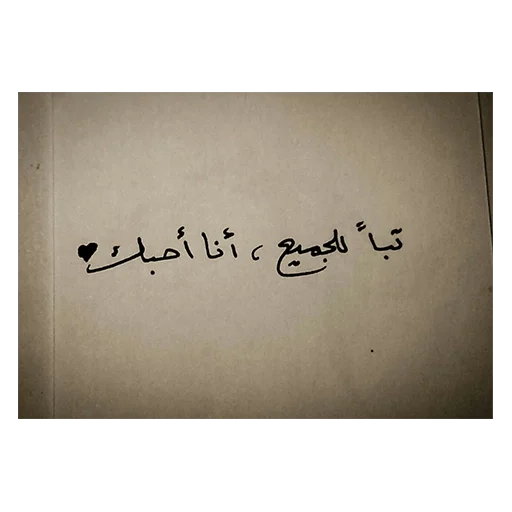 تباً للجميع ، أنا أحبك ♥